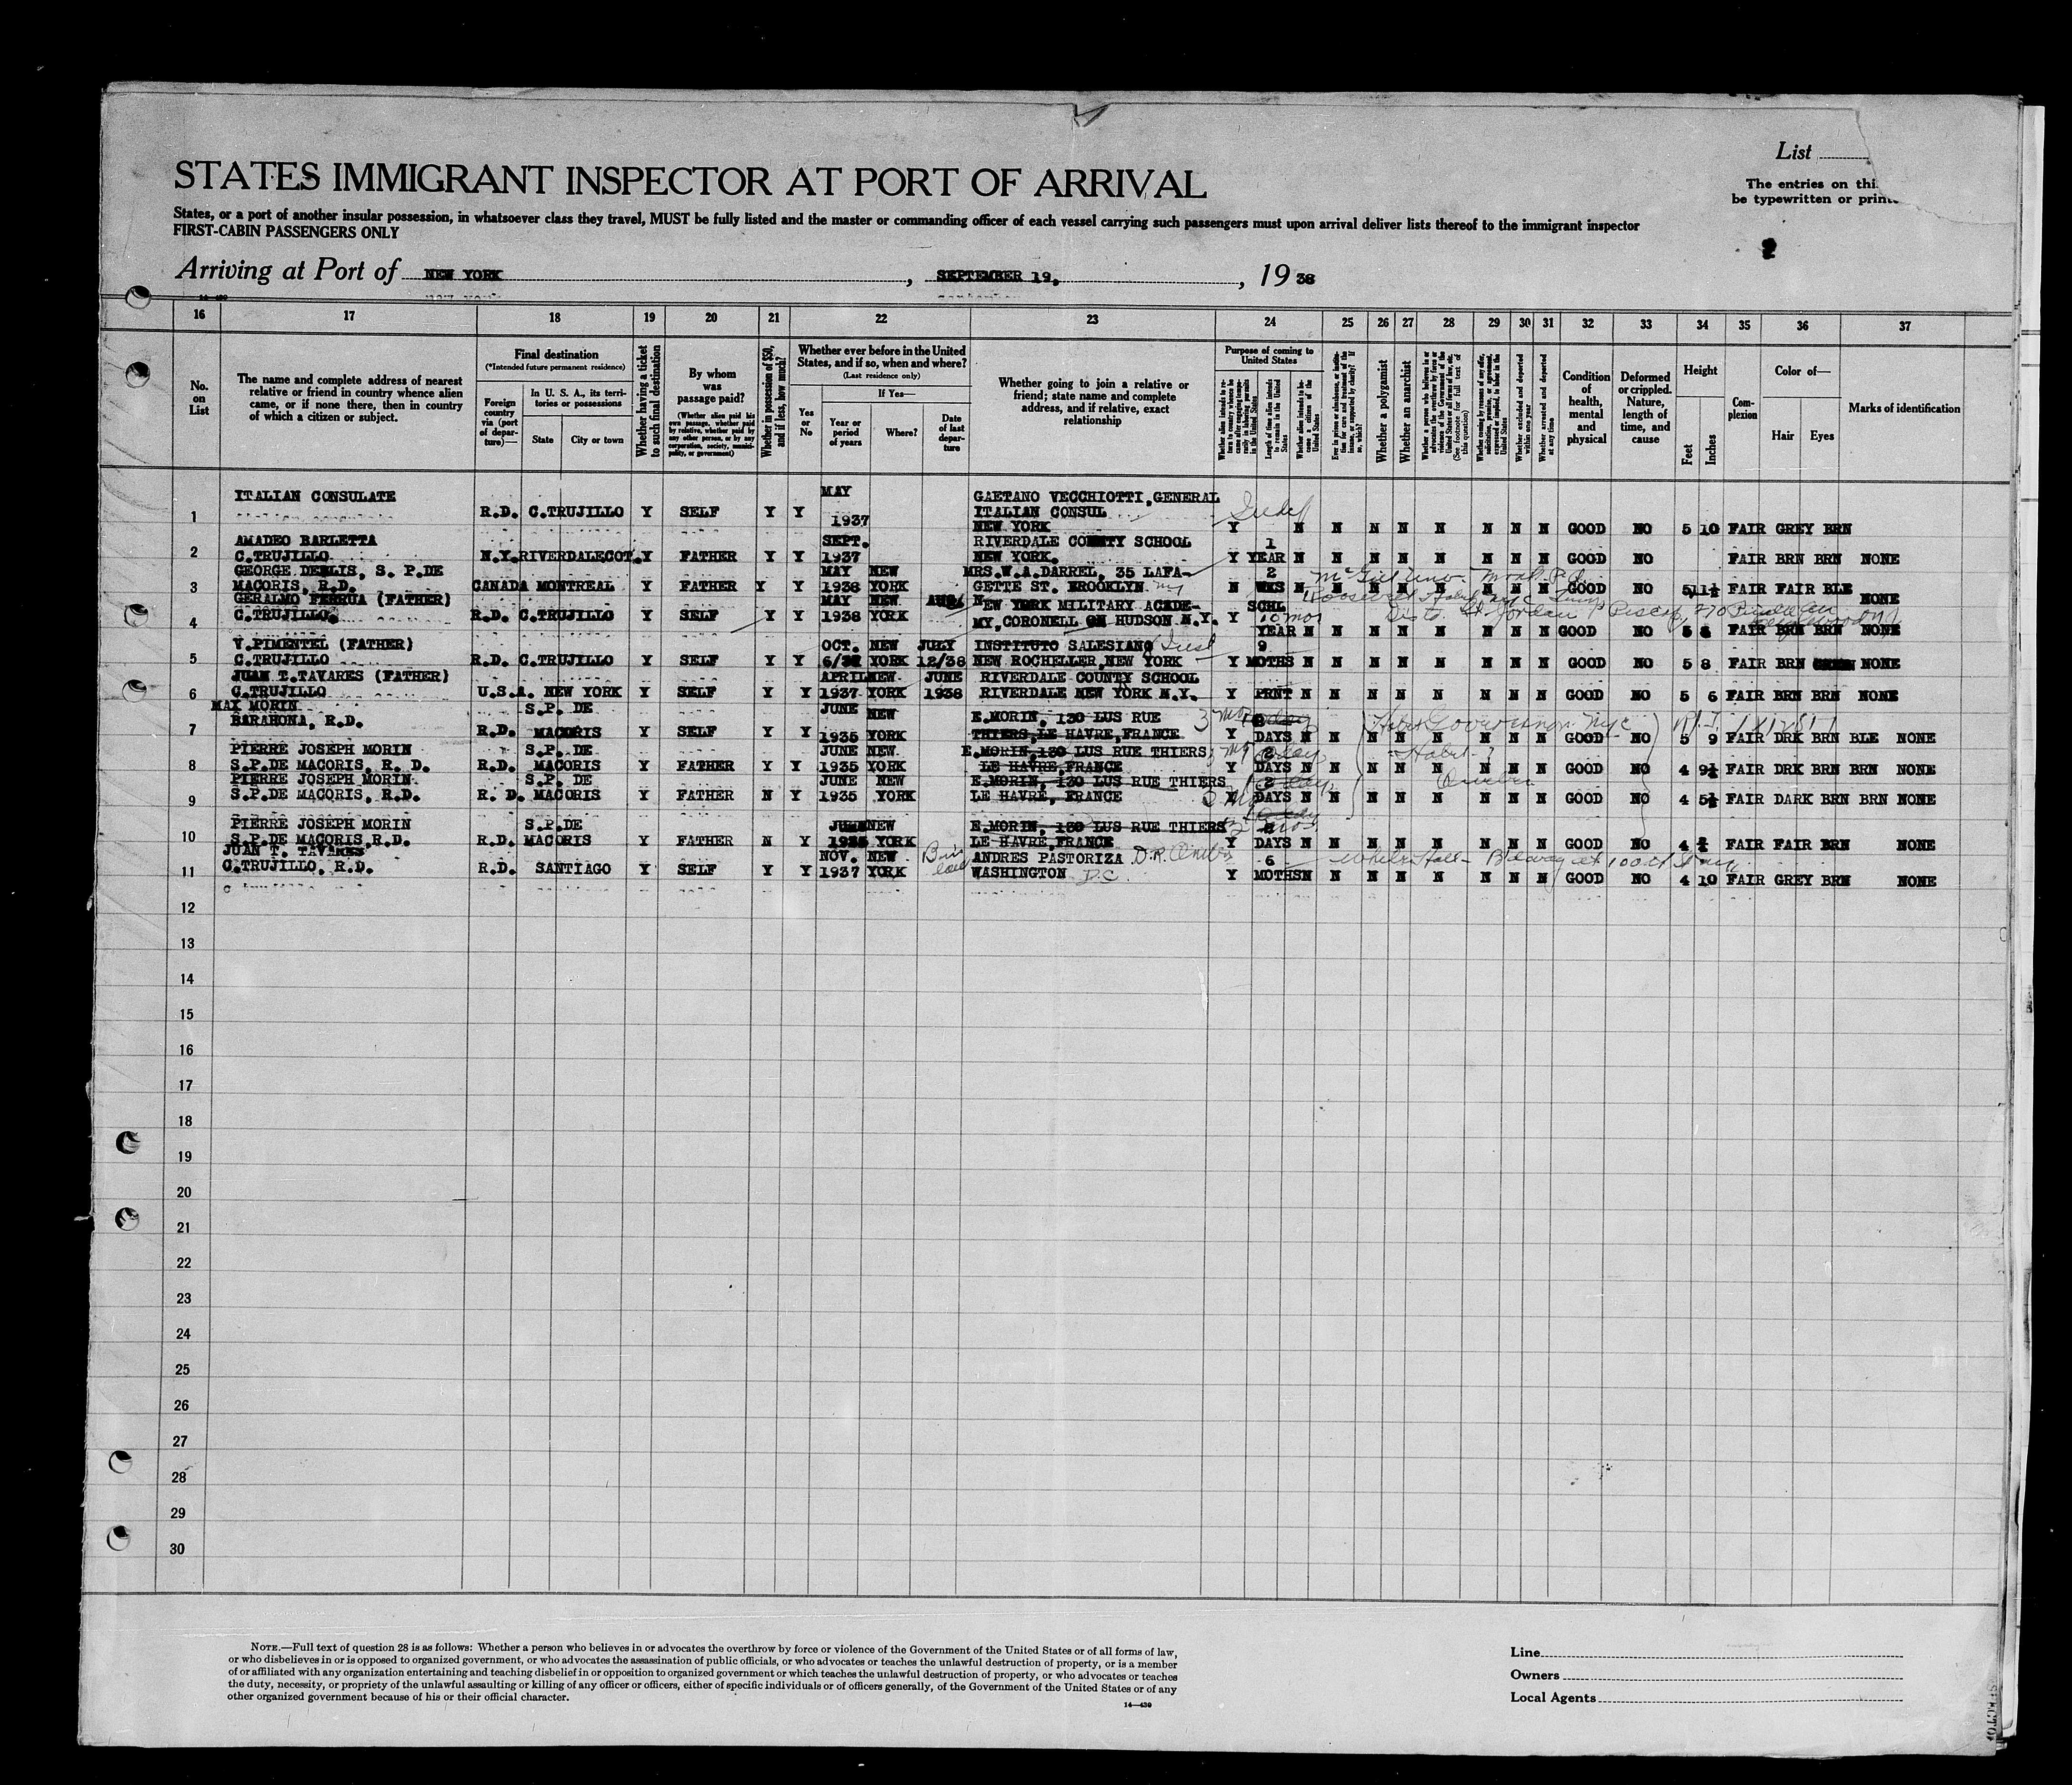 List
STATES IMMIGRANT INSPECTOR AT PORT OF ARRIVAL
The entries on thi
be typewritten or print
States, or a port of another insular possession, in whatsoever class they travel, MUST be fully listed and the master or commanding officer of each vessel carrying such passengers must upon arrival deliver lists thereof to the immigrant inspector
FIRST-CABIN PASSENGERS ONLY
2
Arriving at Port of NEW YORK, SEPTEMBER 19, 1938
16 17 18 19 20 21 22 23 24 25 26 27 28 29 30 31 32 33 34 35 36 37
No. on List
The name and complete address of nearest relative or friend in country whence alien came, or if none there, then in country of which a citizen or subject.
Final destination
(*Intended future permanent residence)
Foreign country via (port of departure)—
In U. S. A., its territories or possessions
State City or town
Whether having a ticket to such final destination
By whom was passage paid?
(Whether alien paid his own passage, whether paid by relative, whether paid by any other person, or by any corporation, society, municipality, or government)
Whether in possession of $50, and if less, how much?
Whether ever before in the United States, and if so, when and where?
(Last residence only)
Yes or No
If Yes—
Year or period of years
Where?
Date of last departure
Whether going to join a relative or friend; state name and complete address, and if relative, exact relationship
Purpose of coming to United States
Length of time alien intends to remain in the United States
Whether alien intends to become a citizen of the United States
Whether a polygamist
Whether an anarchist
Whether excluded and deported within one year
Whether arrested and deported at any time
Condition of health, mental and physical
Deformed or crippled. Nature, length of time, and cause
Height
Feet Inches
Complexion
Color of—
Hair Eyes
Marks of identification
ITALIAN CONSULATE MAY GAETANO VECCHIOTTI, GENERAL
1 R.D. C.TRUJILLO Y SELF Y Y 1937 ITALIAN CONSUL
NEW YORK Y N N N N N N N N GOOD NO 5 10 FAIR GREY BRN
AMADEO BARLETTA SEPT. RIVERDALE COUNTY SCHOOL 1
2 C.TRUJILLO N.Y. RIVERDALECOT. Y FATHER Y Y 1937 NEW YORK. Y YEAR N N N N N N N N GOOD NO FAIR BRN BRN NONE
GEORGE DEHLIS, S. P.DE MAY NEW MRS.W.A.DARREL, 35 LAFA- 2
3 MACORIS, R.D. CANADA MONTREAL Y FATHER Y Y 1938 YORK GETTE ST. BROOKLYN N WKS N N N N N N N N GOOD NO 5 11½ FAIR FAIR BLE NONE
GERALMO FERRUA (FATHER) MAY NEW NEW YORK MILITARY ACADE- SCHL
4 C.TRUJILLO R.D. C.TRUJILLO Y SELF Y Y 1938 YORK MY,CORONELL ON HUDSON N.Y. Y YEAR N N N N N N N N GOOD NO 5 8 FAIR BRN BRN NONE
V.PIMENTEL (FATHER) OCT. NEW JULY INSTITUTO SALESIANO 9
5 C.TRUJILLO R.D. C.TRUJILLO Y SELF Y Y YORK 12/38 NEW ROCHELLER,NEW YORK Y MOTHS N N N N N N N N GOOD NO 5 8 FAIR BRN NONE
JUAN T.TAVARES (FATHER) APRIL NEW JUNE RIVERDALE COUNTY SCHOOL
6 C.TRUJILLO U.S.A. NEW YORK Y SELF Y Y 1937 YORK 1938 RIVERDALE NEW YORK N.Y. Y PRNT N N N N N N N N GOOD NO 5 6 FAIR BRN BRN NONE
MAX MORIN S.P. DE JUNE NEW E.MORIN, 130 LUS RUE
7 BARAHONA, R.D. R.D. MACORIS Y SELF Y Y 1935 YORK THIERS,LE HAVRE,FRANCE Y DAYS N N N N N N N N GOOD NO 5 9 FAIR DRK BRN BLE NONE
PIERRE JOSEPH MORIN S.P. DE JUNE NEW E.MORIN,130 LUS RUE THIERS
8 S.P.DE MACORIS, R. D. R.D. MACORIS Y FATHER Y Y 1935 YORK LE HAVRE,FRANCE Y DAYS N N N N N N N N GOOD NO 4 9½ FAIR DRK BRN BRN NONE
PIERRE JOSEPH MORIN S.P. DE JUNE NEW E.MORIN, 130 LUS RUE THIERS
9 S.P.DE MACORIS, R.D. R. D. MACORIS Y FATHER N Y 1935 YORK LE HAVRE, FRANCE Y DAYS N N N N N N N N GOOD NO 4 5½ FAIR DARK BRN BRN NONE
PIERRE JOSEPH MORIN S.P.DE JUNE NEW E.MORIN, 130 LUS RUE THIERS
10 S.P.DE MACORIS,R.D. R.D. MACORIS Y FATHER N Y 1935 YORK LE HAVRE,FRANCE Y DAYS N N N N N N N N GOOD NO 4 FAIR FAIR BRN NONE
JUAN T. TAVARES NOV. NEW ANDRES PASTORIZA 6
11 C.TRUJILLO, R.D. R.D. SANTIAGO Y SELF Y Y 1937 YORK WASHINGTON D.C. Y MOTHS N N N N N N N N GOOD NO 4 10 FAIR GREY BRN NONE
12
13
14
15
16
17
18
19
20
21
22
23
24
25
26
27
28
29
30
NOTE.—Full text of question 28 is as follows: Whether a person who believes in or advocates the overthrow by force or violence of the Government of the United States or of all forms of law,
or who disbelieves in or is opposed to organized government, or who advocates the assassination of public officials, or who advocates or teaches the unlawful destruction of property, or is a member
of or affiliated with any organization entertaining and teaching disbelief in or opposition to organized government or which teaches the unlawful destruction of property, or who advocates or teaches
the duty, necessity, or propriety of the unlawful assaulting or killing of any officer or officers, either of specific individuals or of officers generally, of the Government of the United States or of any
other organized government because of his or their official character.
14—430
Line
Owners
Local Agents